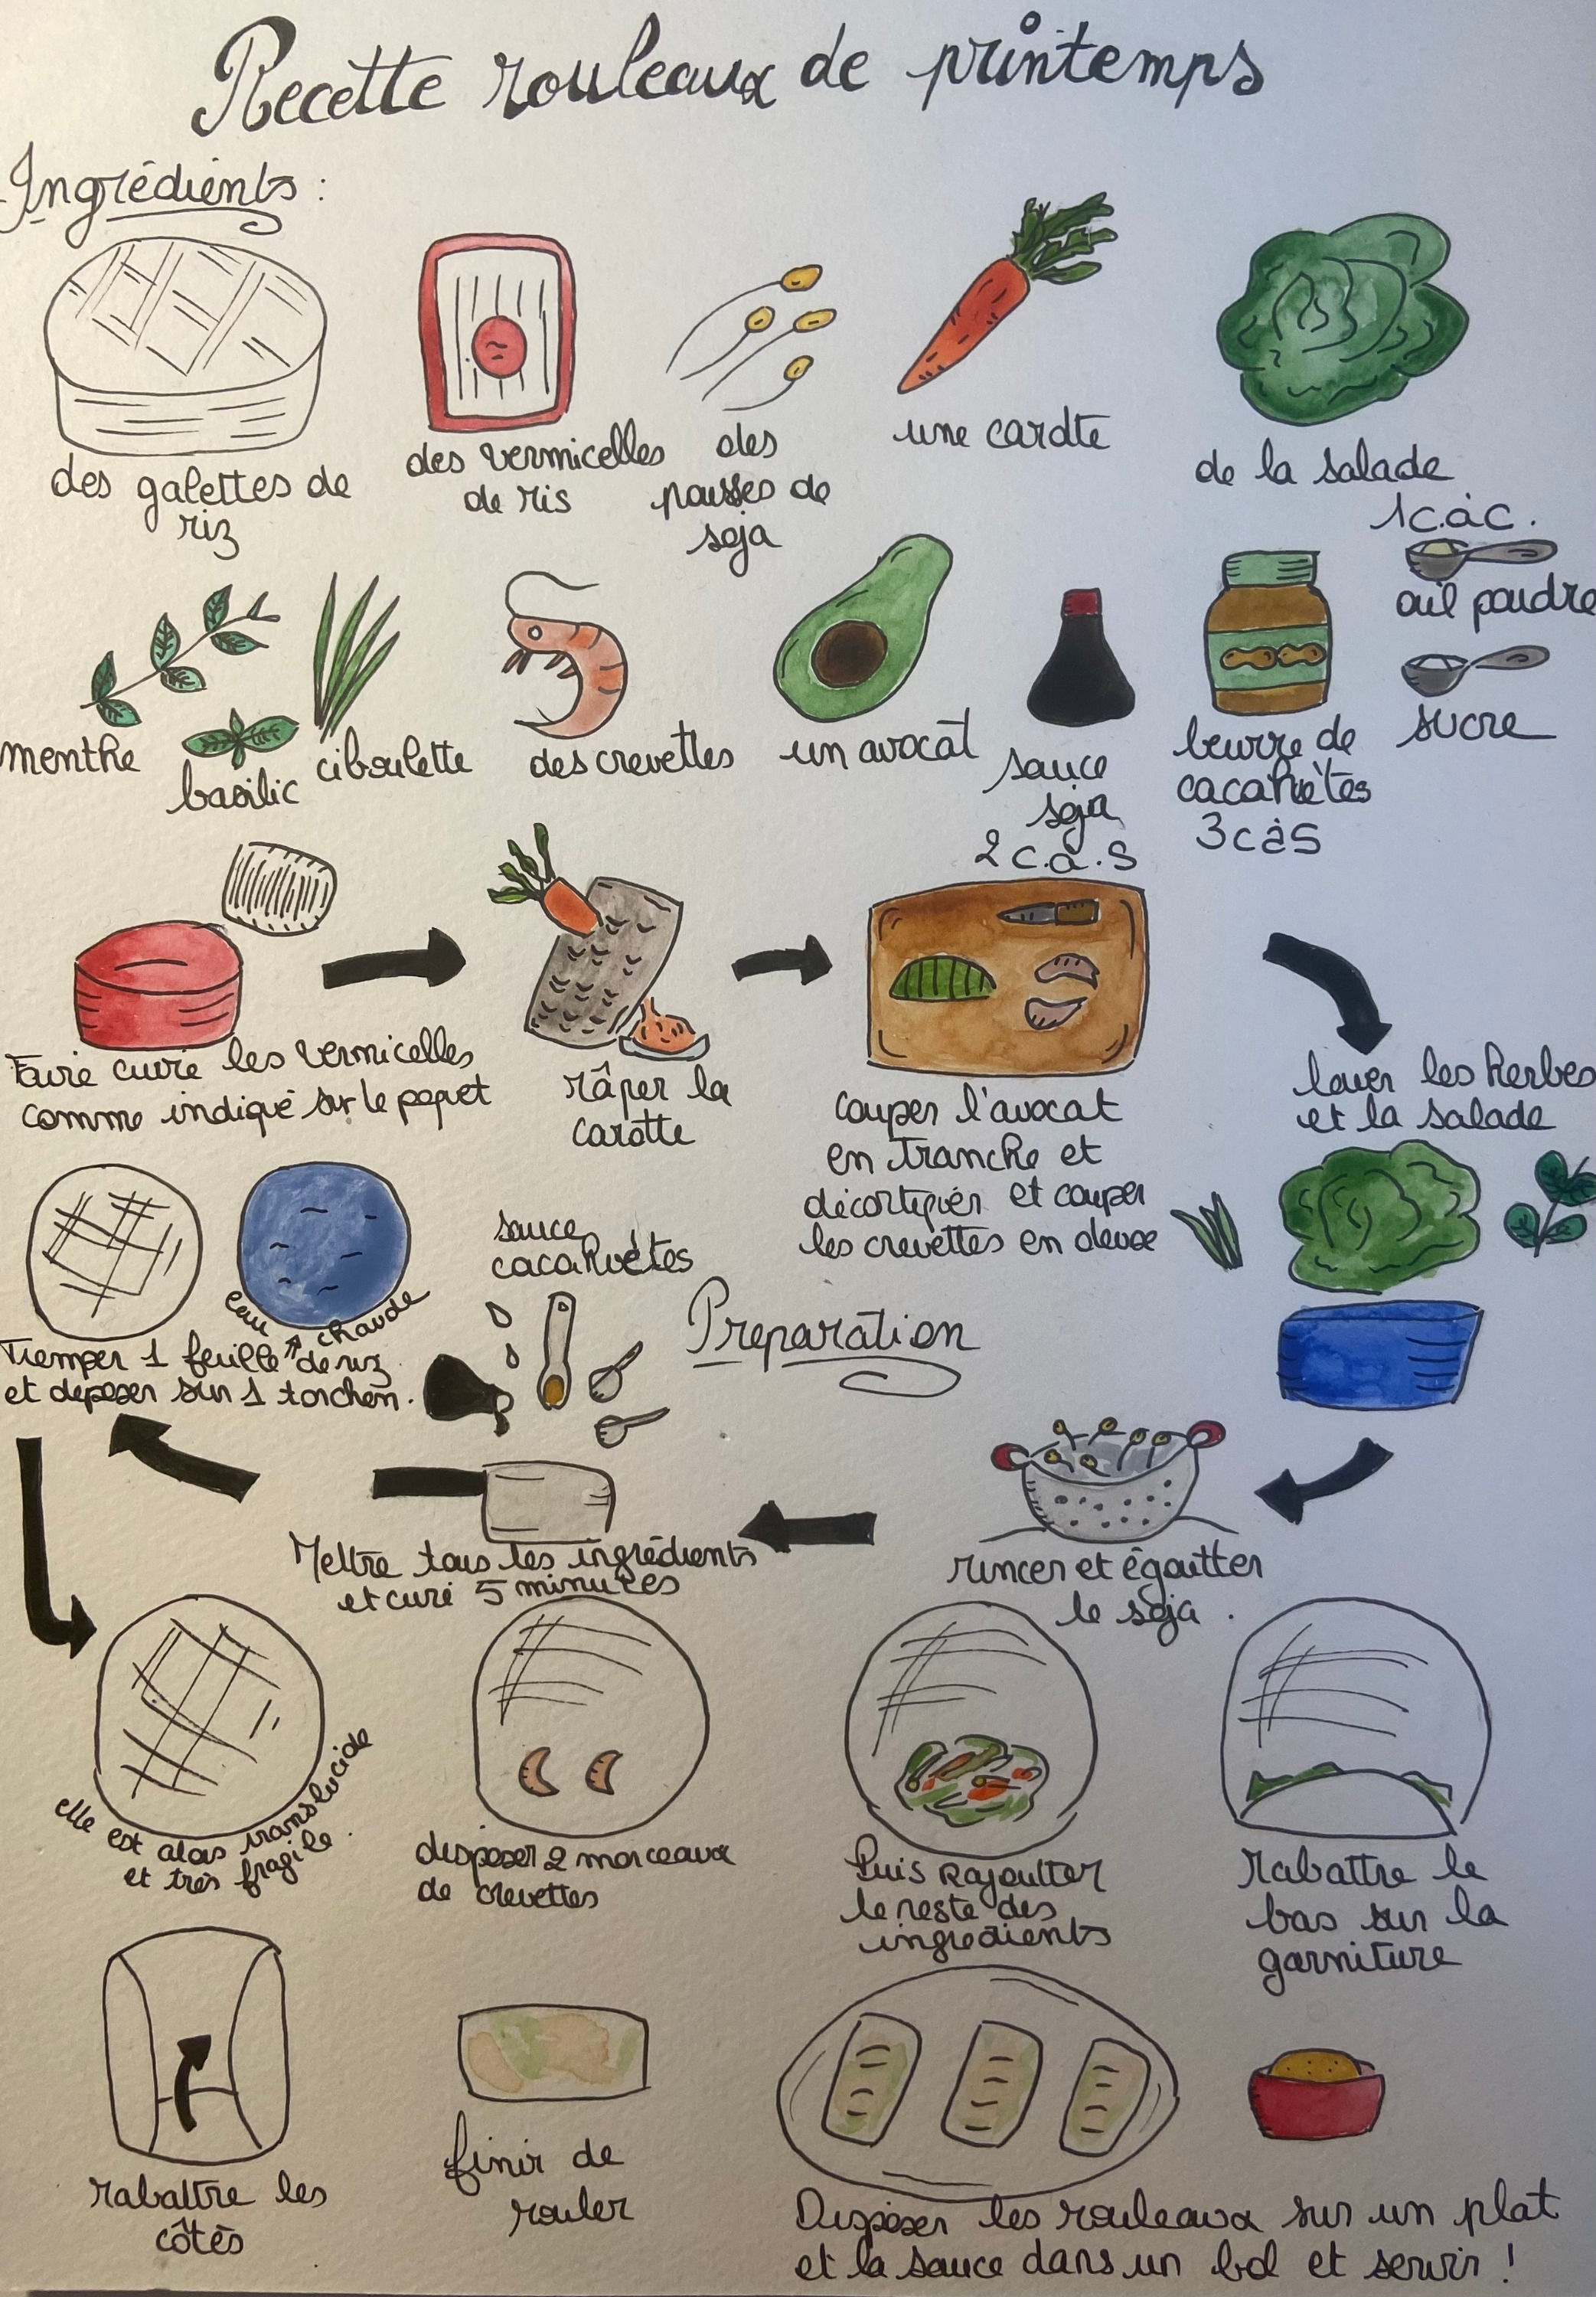 Recette rouleaux de printemps
Ingrédients :
des galettes de
riz
des vermicelles
de ris
des
pousses de
soja
une carotte
de la salade
1 c.à c.
ail poudre
sucre
menthe
basilic
ciboulette
des crevettes
un avocat
sauce
soja
2 c.a.s
beurre de
cacahuètes
3 càs
Faire cuire les vermicelles
comme indiqué sur le paquet
râper la
carotte
couper l'avocat
en tranche et
décortiquer et couper
les crevettes en deux
laver les herbes
et la salade
Preparation
rincer et égoutter
le soja .
sauce
cacahuètes
Mettre tous les ingrédients
et curé 5 minutes
eau chaude
Tremper 1 feuille de riz
et deposer sur 1 torchon.
elle est alors translucide
et très fragile.
disposer 2 morceaux
de crevettes
Puis Rajoutter
le reste des
ingredients
Rabattre le
bas sur la
garniture
rabattre les
côtés
finir de
rouler
Disposer les rouleaux sur un plat
et la sauce dans un bol et servir !